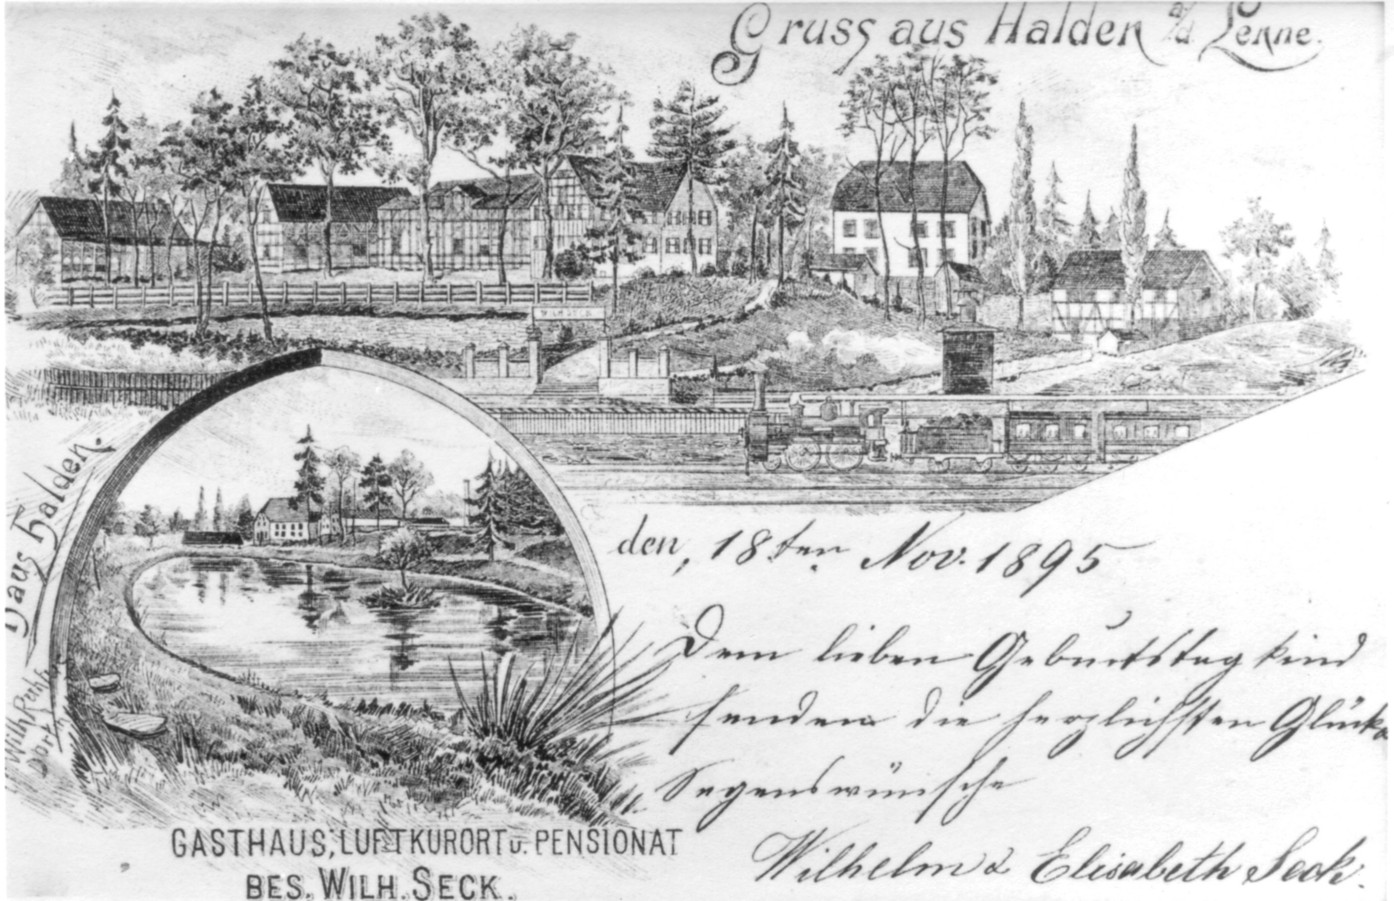 Gruss aus Halden a/d Lenne.
Haus Halden.
den, 18ten Nov. 1895
Dem lieben Geburtstagkind
senden die herzlichsten Glück-
Segenswünsche
Wilhelm & Elisabeth Seck.
GASTHAUS, LUFTKURORT u. PENSIONAT
BES. WILH. SECK.